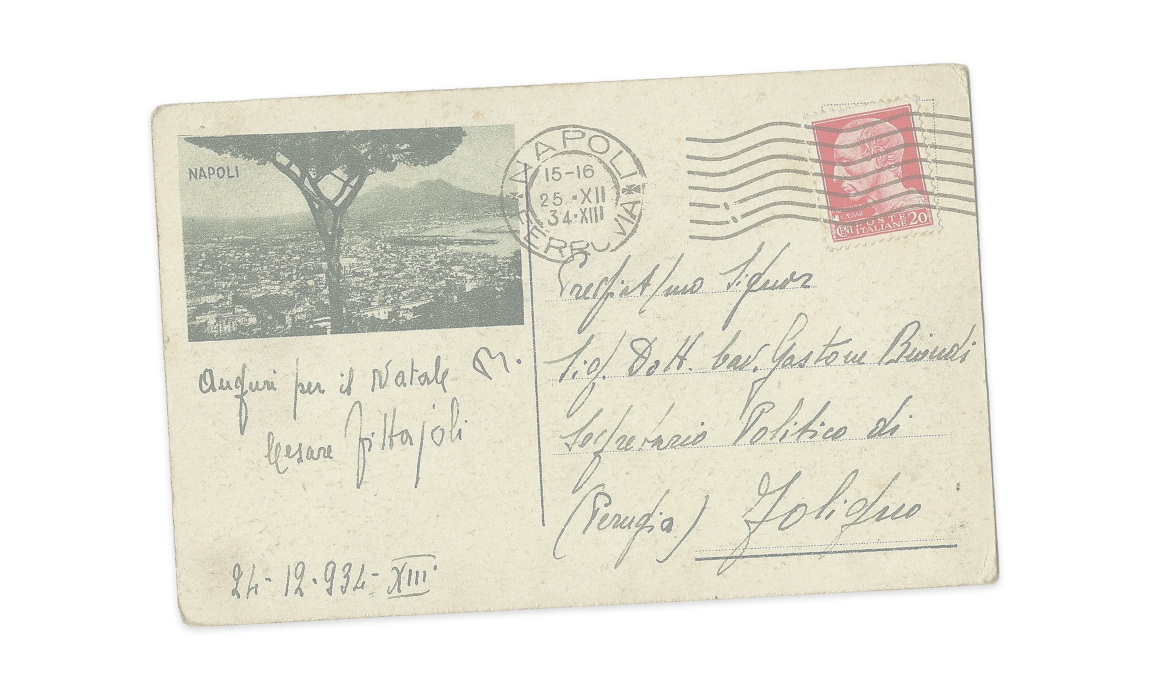 NAPOLI
NAPOLI
FERROVIA
15-16
25.·XII
34·XIII
CESAR
CENT POSTE 20
ITALIANE
Auguri per il Natale
Cesare Fittajoli
24-12-934-XIII
Pregiat/mo Signor
Sig. Dott. Cav. Gastone Biondi
Segretario Politico di
(Perugia) Foligno